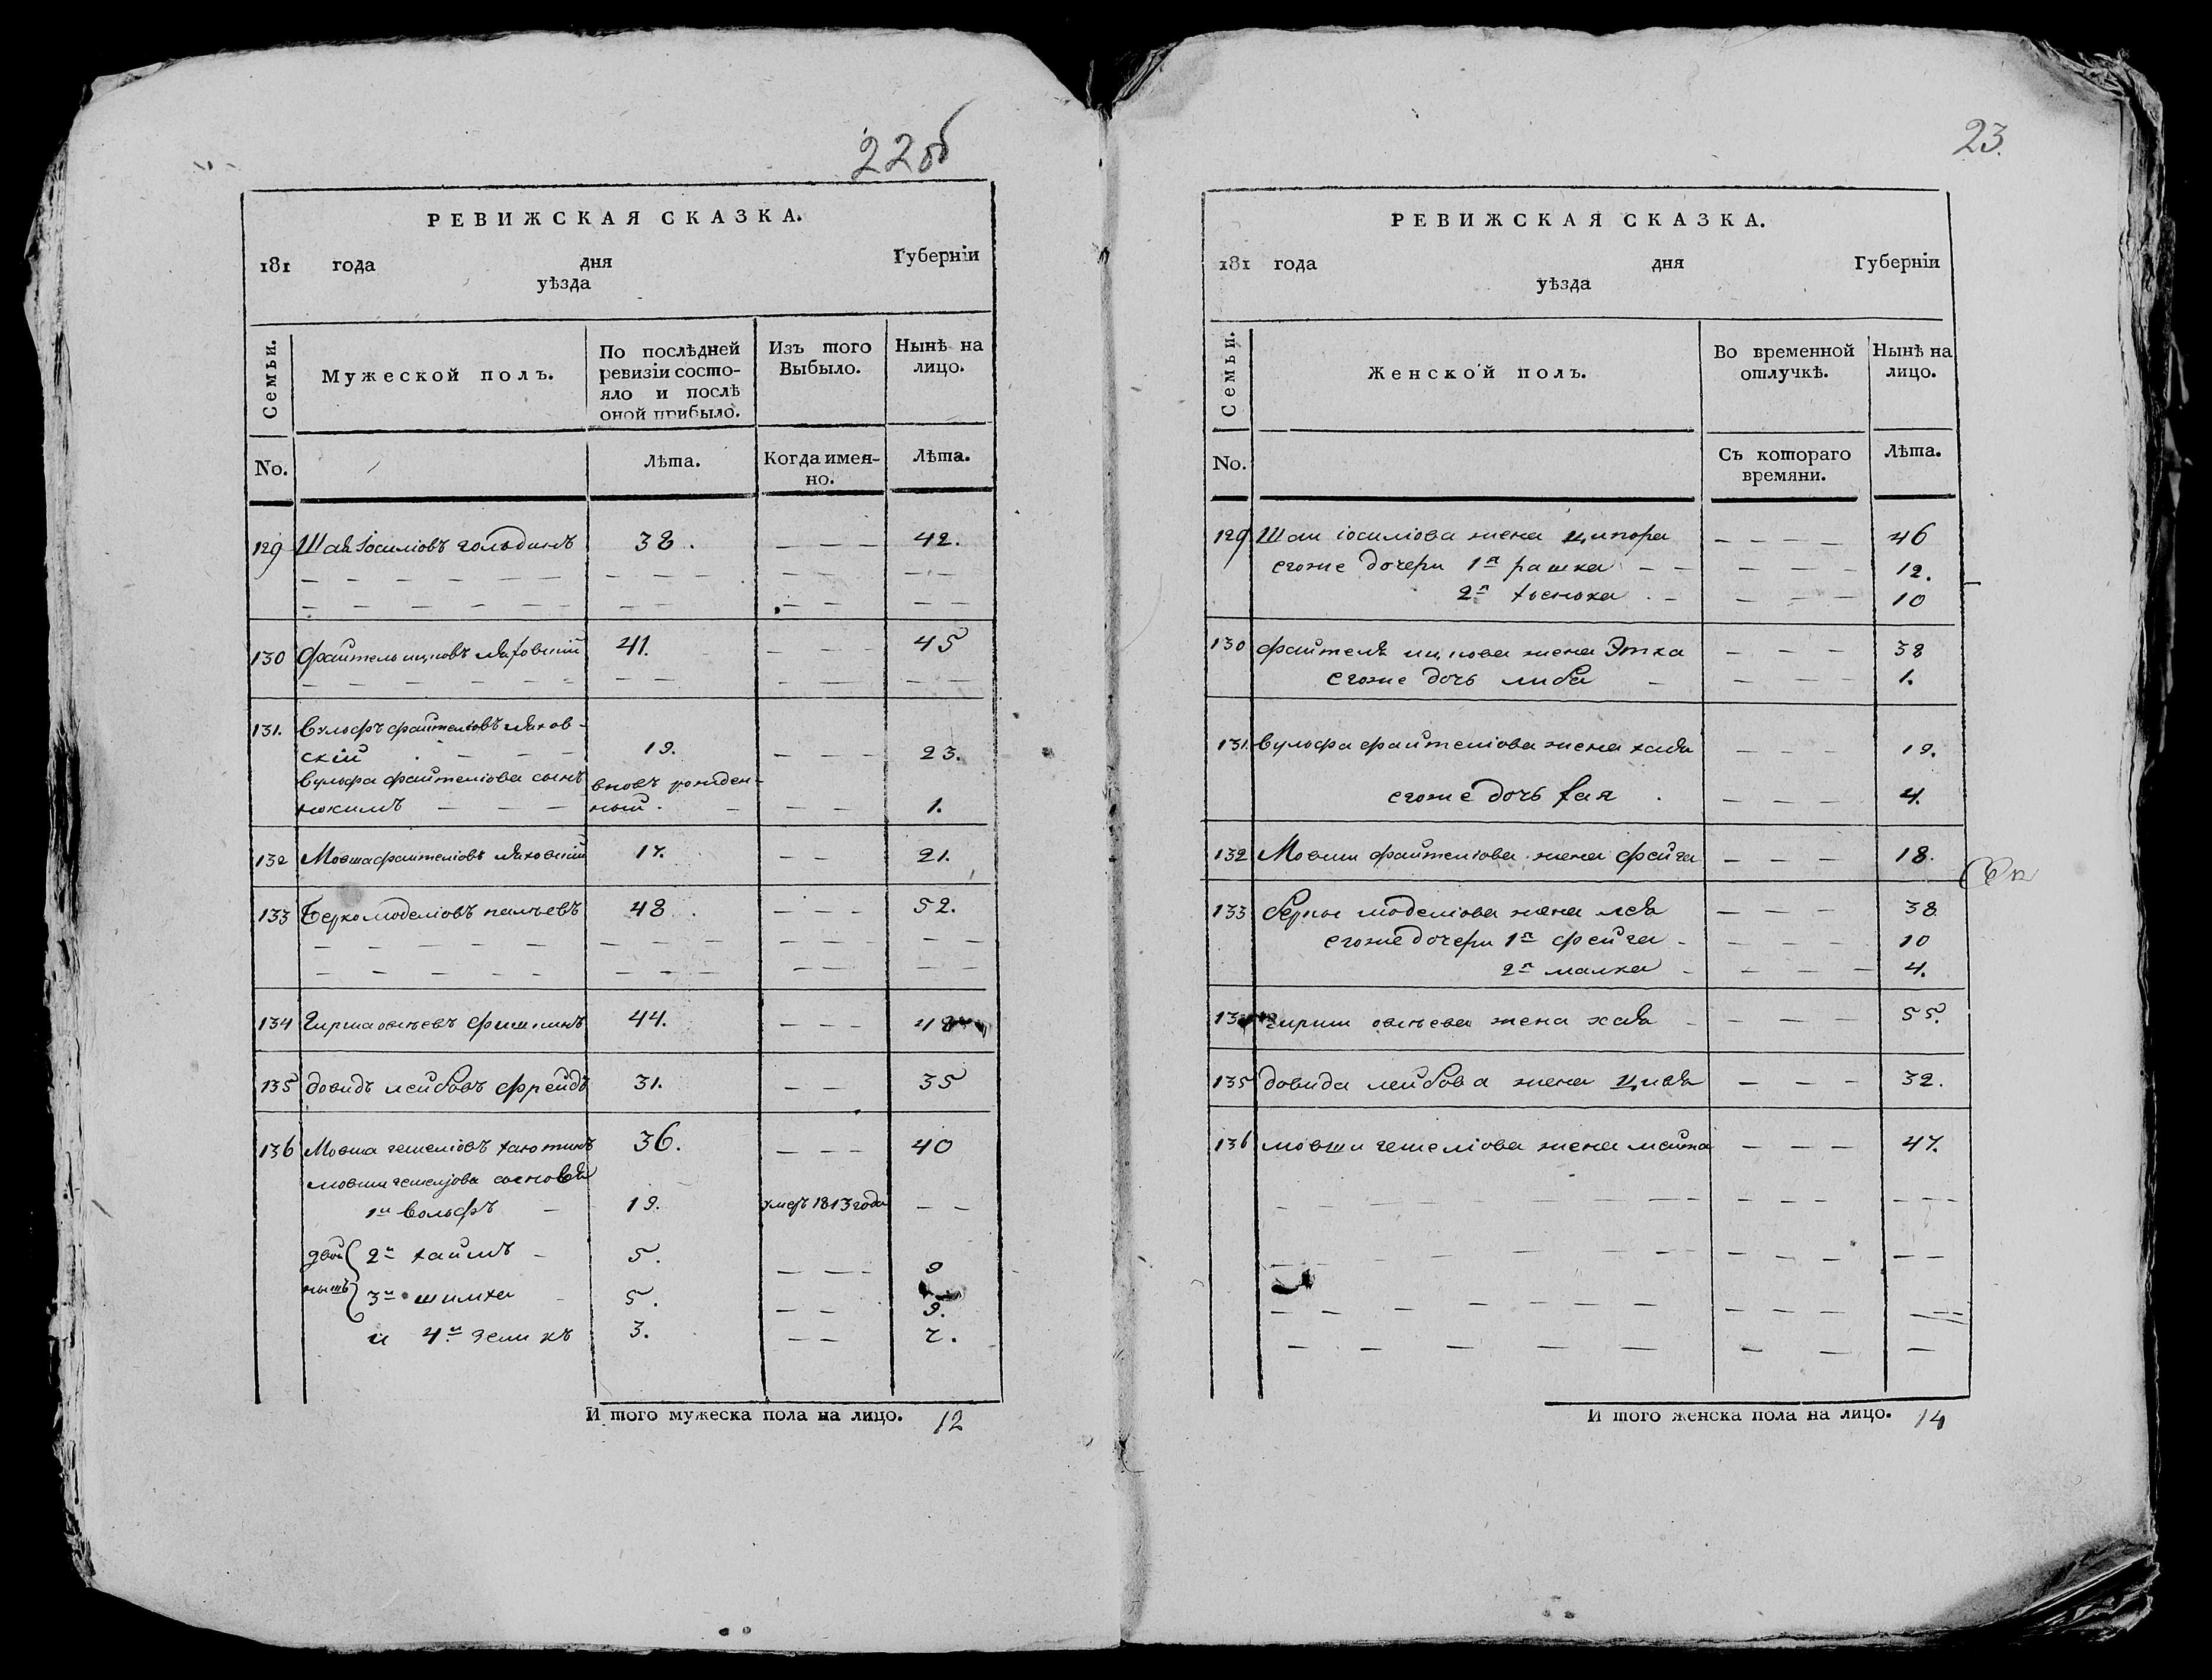 22об
РЕВИЖСКАЯ СКАЗКА.
181 года дня Губерніи
уѣзда
Семьи.
Мужеской полъ.
По послѣдней ревизіи состо-
яло и послѣ
оной прибыло.
Изъ того
Выбыло.
Нынѣ на
лицо.
No.
Лѣта.
Когда имен-
но.
Лѣта.
129 Шая Іосиліовъ гольдинъ 38. — — — 42.
130 Файтель ицковъ ляховскій 41. — — — 45
131. Вульфъ файтеліовъ ляхов-
скій 19. — — — 23.
Вульфа файтеліова сынъ вновь рожден-
нохимъ — — — ный. — — — 1.
132 Мовша файтеліовъ ляховскій 17. — — 21.
133 Берко моделіовъ 48 — — — 52.
134 Гирша овсѣевъ фишкинъ 44. — — — 48
135 довидъ лейбовъ фрейдъ 31. — — 35
136 Мовша гешеліовъ хаютинъ 36. — — — 40
мовши гешеліова сыновья
1й Вольфъ — 19. умеръ 1813 года — —
двой 2й хаимъ — 5. — — — 9
нышъ 3й шимха — 5. — — 9.
и 4й зеликъ 3. — — 7.
И того мужеска пола на лицо. 12
23.
РЕВИЖСКАЯ СКАЗКА.
181 года дня Губерніи
уѣзда
Семьи.
Женской полъ.
Во временной
отлучкѣ.
Нынѣ на
лицо.
No.
Съ котораго
времяни.
Лѣта.
129 Шаи іосиліова жена ципора — — — — 46
егоже дочери 1я рашка — — — — — 12.
2я хьенька — — — — 10
130 файтеля ицкова жена Этка — — — 38
егоже дочь либа — — — — 1.
131. вульфа файтеліова жена хая — — — 19.
егоже дочь хая — — — 4.
132 Мовши файтеліова жена фейга — — — 18.
133 берки моделіова жена лея — — — 38
егоже дочери 1я фейга — — — — 10
2я малка — — — — 4.
134 гирши овсѣева жена хая — — — — 55.
135 довида лейбова жена цивя — — — 32.
136 мовши гешеліова жена — — — 47.
И того женска пола на лицо. 14